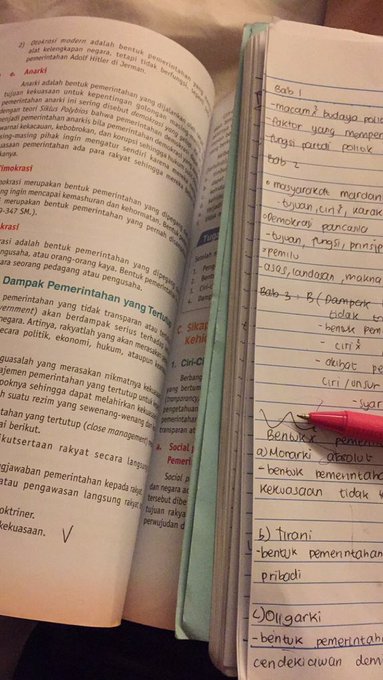 2) Otokrasi modern adalah bentuk pemerintahan yang
alat kelengkapan negara, tetapi tidak berfungsi.
pemerintahan Adolf Hitler di Jerman.
e. Anarki
Anarki adalah bentuk pemerintahan yang dijalankan
tujuan kekuasaan untuk kepentingan golongan
pemerintahan anarki ini sering disebut demokrasi yang
dengan teori Siklus Polybios bahwa pemerintahan demokrasi
menjadi pemerintahan anarkis bila pemerintahan demokrasi
warnai kekacauan, kebobrokan, dan korupsi sehingga
sing-masing pihak ingin mengatur sendiri karena
uasaan pemerintahan ada para rakyat sehingga mereka
kanya.
Timokrasi
mokrasi merupakan bentuk pemerintahan yang dipegang
ng ingin mencapai kemasyhuran dan kehormatan.
merupakan bentuk pemerintahan yang pernah
-347 SM.).
krasi
rasi adalah bentuk pemerintahan yang dipegang
ngusaha, atau orang-orang kaya. Bentuk pemerintahan
ara seorang pedagang atau pengusaha.
Dampak Pemerintahan yang Tertutup
pemerintahan yang tidak transparan atau
ernment) akan berdampak serius terhadap
negara. Artinya, rakyatlah yang akan merasakan
ecara politik, ekonomi, hukum, ataupun
nguasalah yang merasakan nikmatnya
ajemen pemerintahan yang tertutup untuk
poknya sehingga dapat melahirkan kekuasaan
suatu rezim yang sewenang-wenang dan
tahan yang tertutup (close management)
ai berikut.
ikutsertaan rakyat secara langsung
ngjawaban pemerintahan kepada rakyat
atau pengawasan langsung rakyat
oktriner.
kekuasaan.
C Sikap
1. Ciri-Ci
Berbang
yang bertum
pengetahuan
pemerintahan
transparan at
a. Social
Pemeri
Social
dan negara ac
tersebut dibe
tujuan rakya
perwujudan d
Bab 1
-macam² budaya poli
-faktor yang mempen
-fungsi partai politik
Bab 2
• masyarakat madan
-tujuan, ciri², karak
•demokrasi pancasila
-tujuan, fungsi, prinsip
•pemilu
-asas, landasan, makna
Bab 3 - B (Dampak
tidak
- bentuk pem
- ciri²
- akibat pe
ciri / unsur
-syar
Bentuk² pemerin
a) Monarki absolut
-bentuk pemerintaha
kekuasaan tidak
b) tirani
-bentuk pemerintahan
pribadi
c) Oligarki
-bentuk pemerintah
cendekiawan den